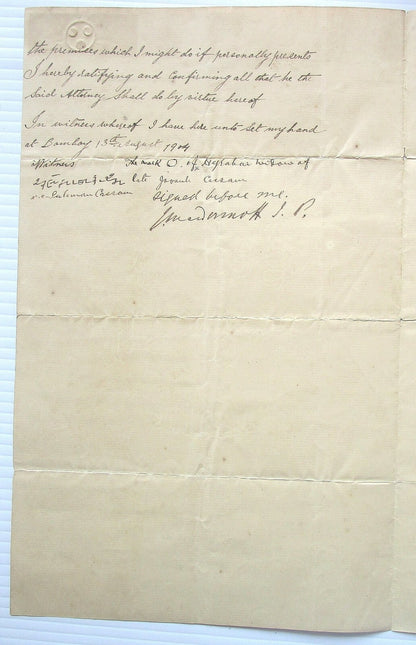 the premises which I might do if personally presents
I hereby ratifying and Confirming all that he the
Said Attorney Shall do by virtue hereof
In witness whereof I have here unto Set my hand
at Bombay 13th August 1904
Witness The mark O. of widow of
late Cursam
Signed before me.
J. P.